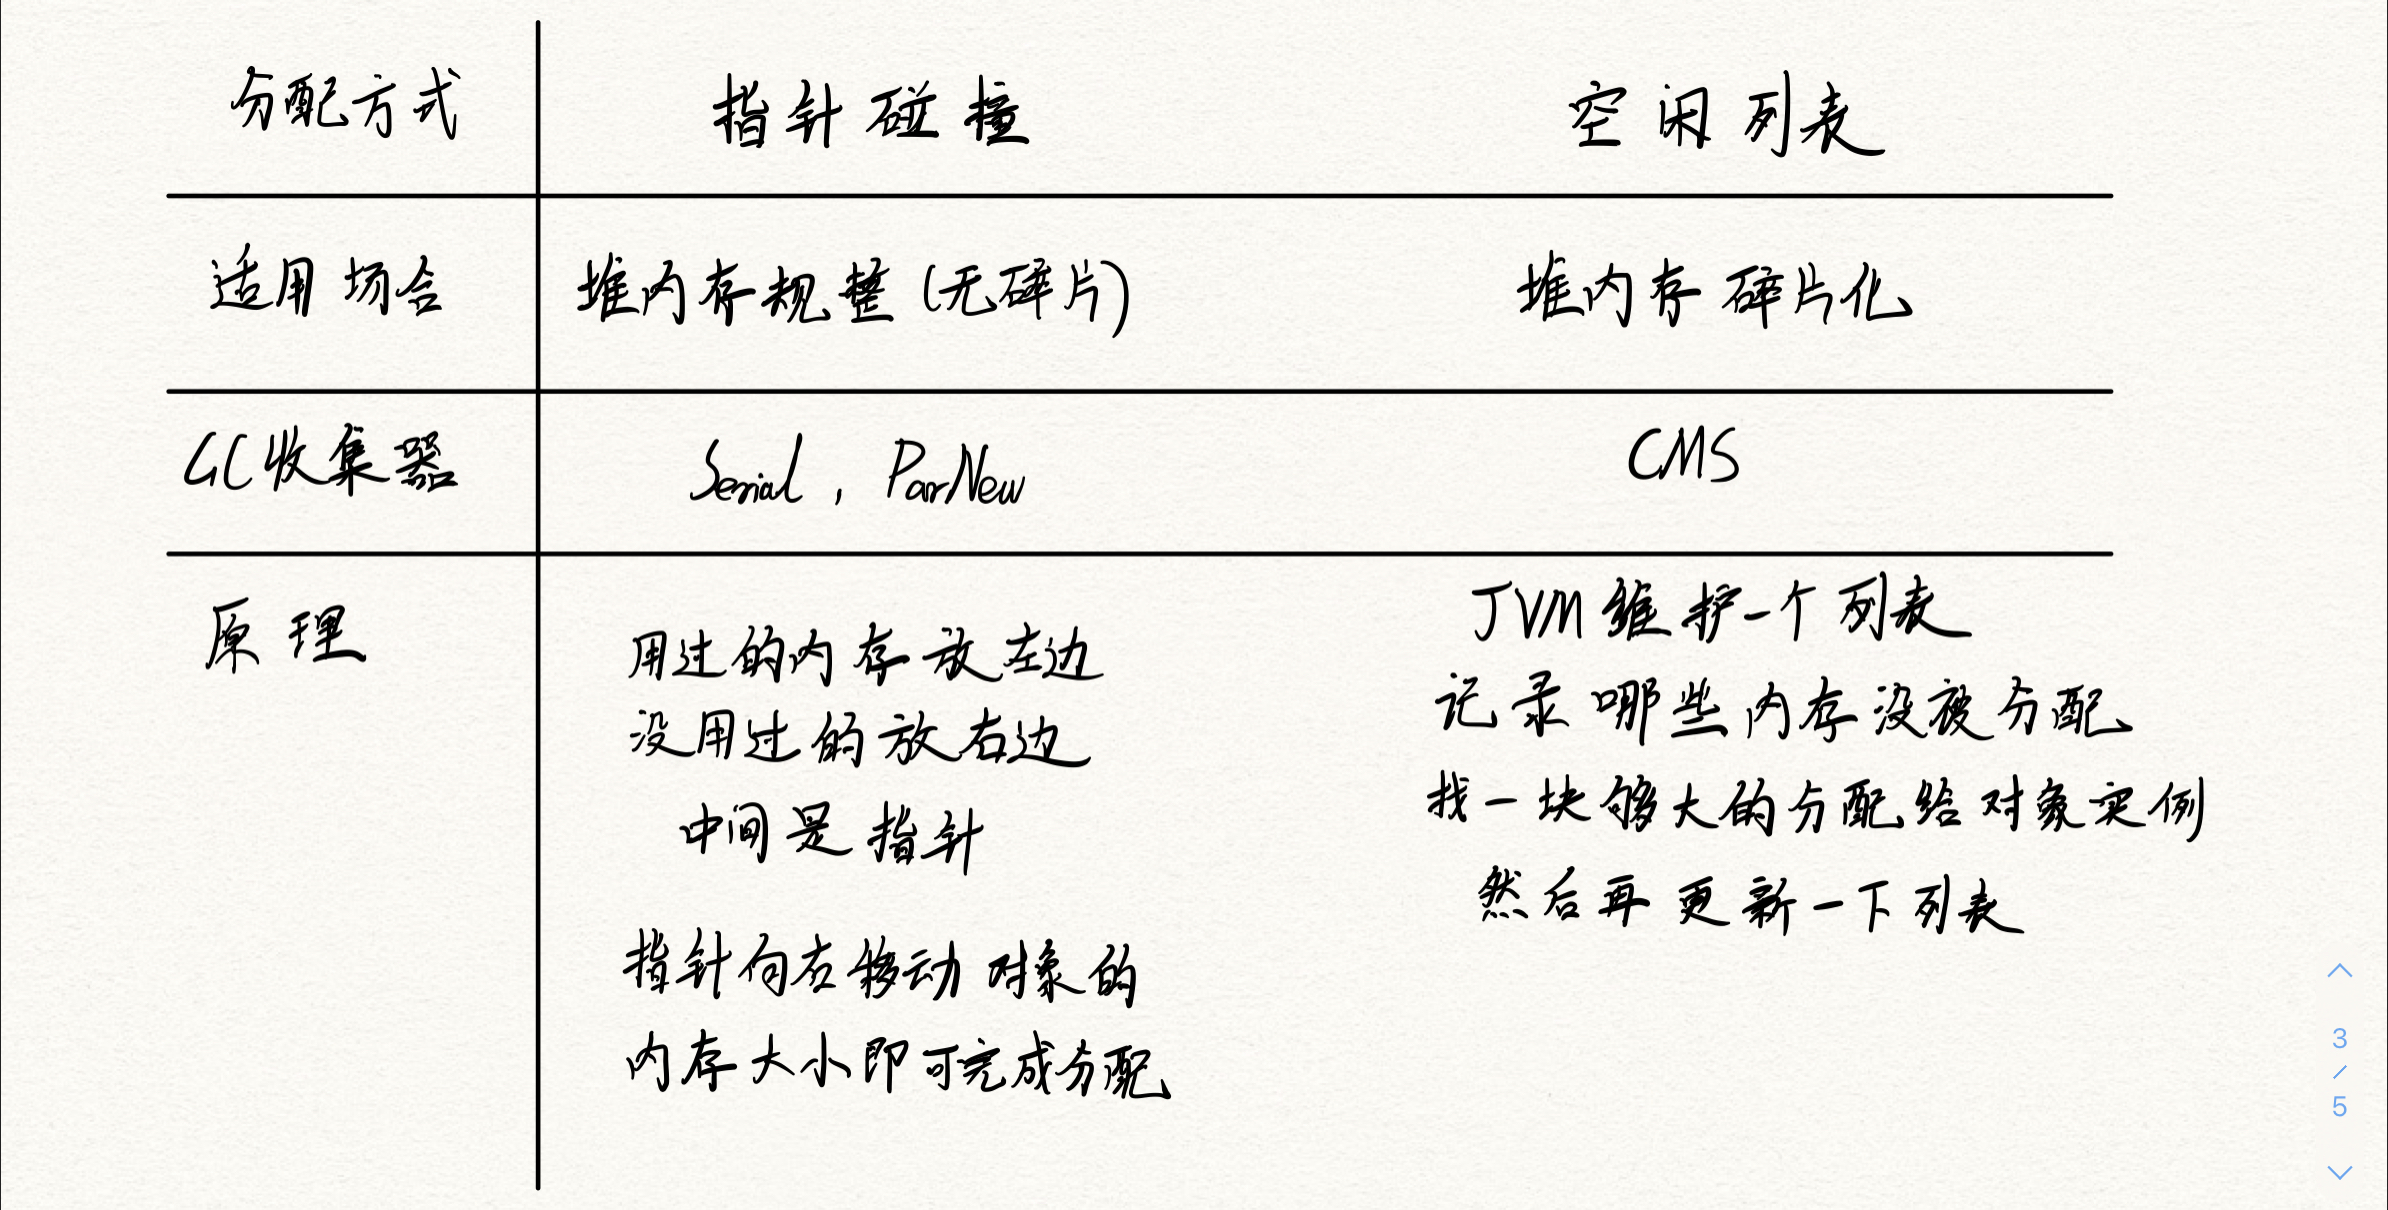 分配方式 指针碰撞 空闲列表
适用场合 堆内存规整(无碎片) 堆内存碎片化
GC收集器 Serial, ParNew CMS
原理
用过的内存放左边
没用过的放右边
中间是指针
指针向右移动对象的
内存大小即可完成分配
JVM维护一个列表
记录哪些内存没被分配
找一块够大的分配给对象实例
然后再更新一下列表
3
/
5